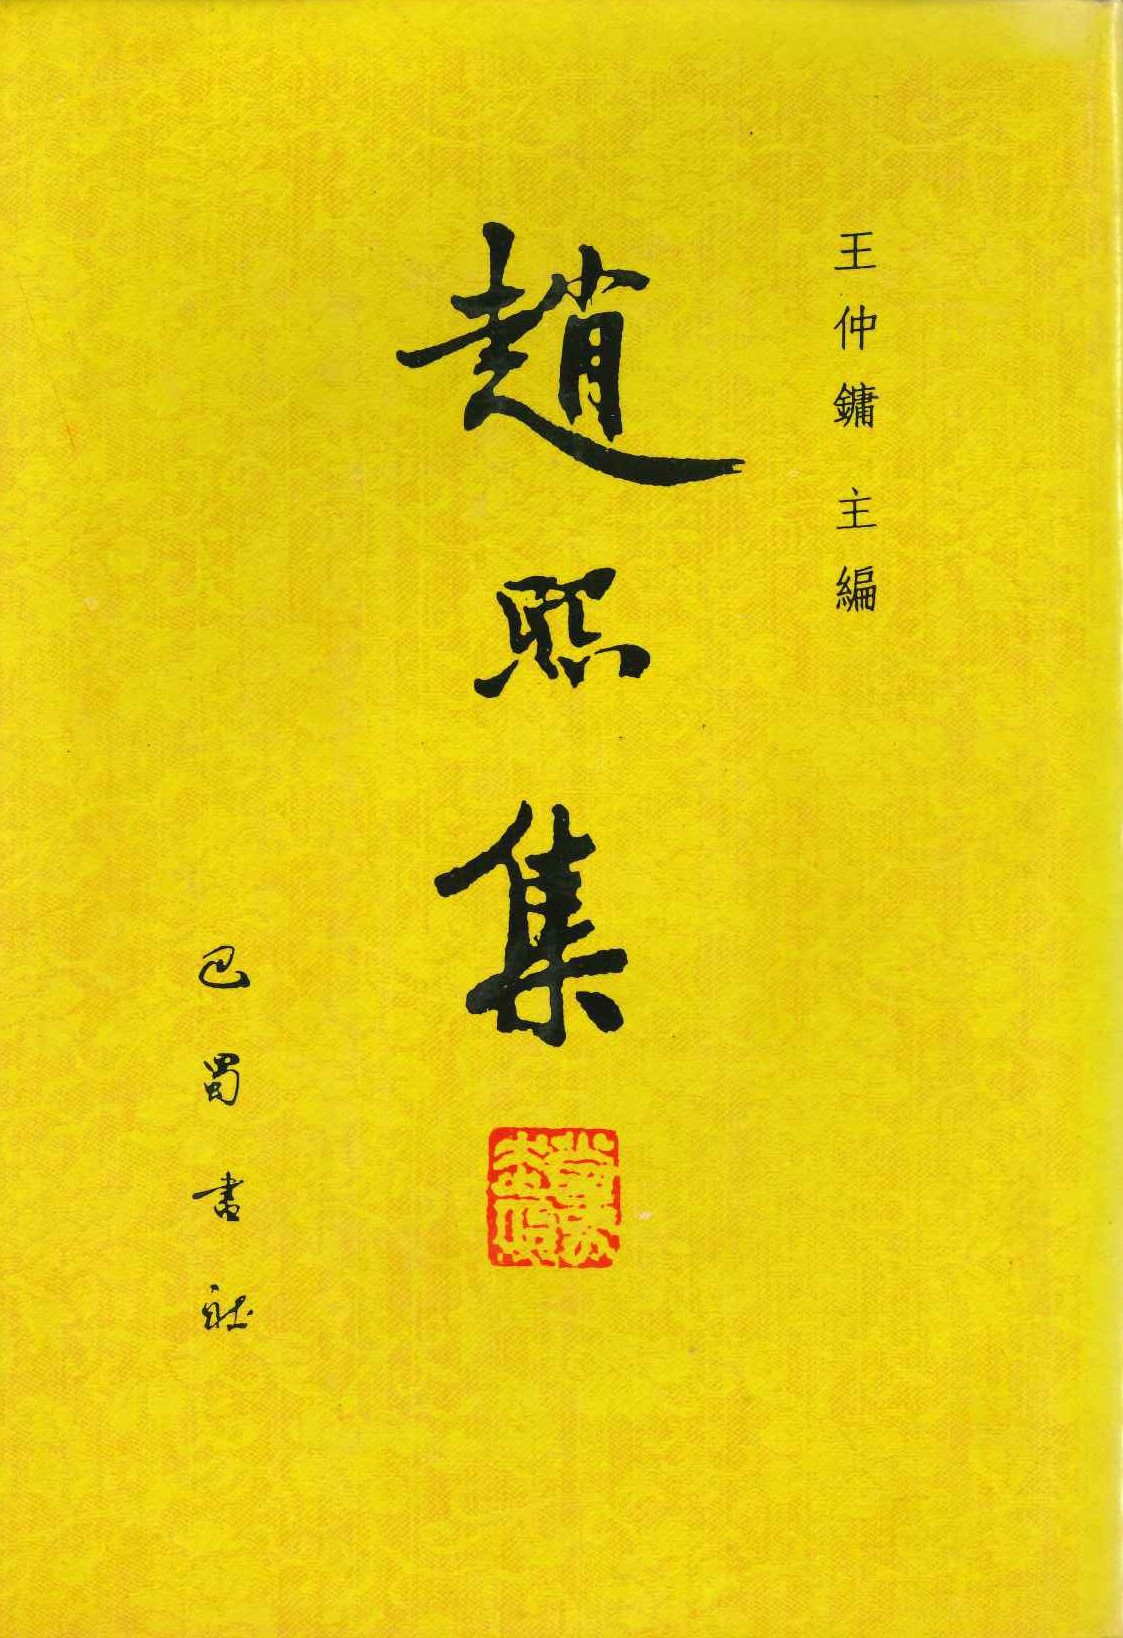 王仲鏞 主編
趙熙集
巴蜀書社